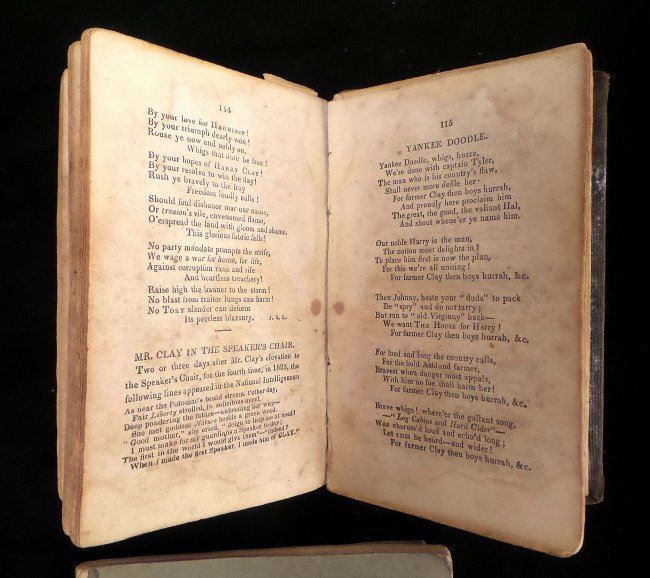 114
By your love for HARRISON!
By your triumph dearly won!
Rouse ye now and nobly on,
Whigs that dare be free!
By your hopes of HARRY CLAY!
By your resolve to win the day!
Rush ye bravely to the fray
Freedom loudly calls!
Should foul dishonor mar our name,
Or treason's vile, envenomed flame,
O'erspread the land with gloom and shame.
This glorious fabric falls!
No party mandate prompts the strife,
We wage a war for home, for life,
Against corruption rank and rife
And heartless treachery!
Raise high the banner to the storm!
No blast from traitor lungs can harm!
No TORY slander can deform
Its peerless blazonry.
MR. CLAY IN THE SPEAKER'S CHAIR.
Two or three days after Mr. Clay's elevation to
the Speaker's Chair, for the fourth time, in 1823, the
following lines appeared in the National Intelligencer:
As near the Potomac's broad stream, t'other day,
Fair Liberty strolled, in solicitous mood,
Deep pondering the future—unheeding her way—
She met goddess Nature beside a green wood.
"Good mother," she cried, "deign to help me at need!
I must make for my guardians a Speaker to-day:
The first in the world I would give them"—"Indeed!
When I made the first Speaker, I made him of CLAY."
115
YANKEE DOODLE.
Yankee Doodle, whigs, huzza,
We're done with captain Tyler,
The man who is his country's flaw,
Shall never more defile her:
For farmer Clay then boys hurrah,
And proudly here proclaim him
The great, the good, the valiant Hal,
And shout whene'er ye name him.
Our noble Harry is the man,
The nation most delights in?
To place him first is now the plan,
For this we're all uniting!
For farmer Clay then boys hurrah, &c.
Then Johnny, haste your "duds" to pack
Be "spry" and do not tarry;
But run to "old Virginny" back—
We want THE HOUSE for Harry!
For farmer Clay then boys hurrah, &c.
For loud and long the country calls,
For the bold Ashland farmer,
Bravest when danger most appals,
With him no foe shall harm her!
For farmer Clay then boys hurrah, &c.
Brave whigs! where'er the gallant song,
—"Log Cabins and Hard Cider"—
Was chorus'd loud and echo'd long;
Let THIS be heard—and wider!
For farmer Clay then boys hurrah, &c.